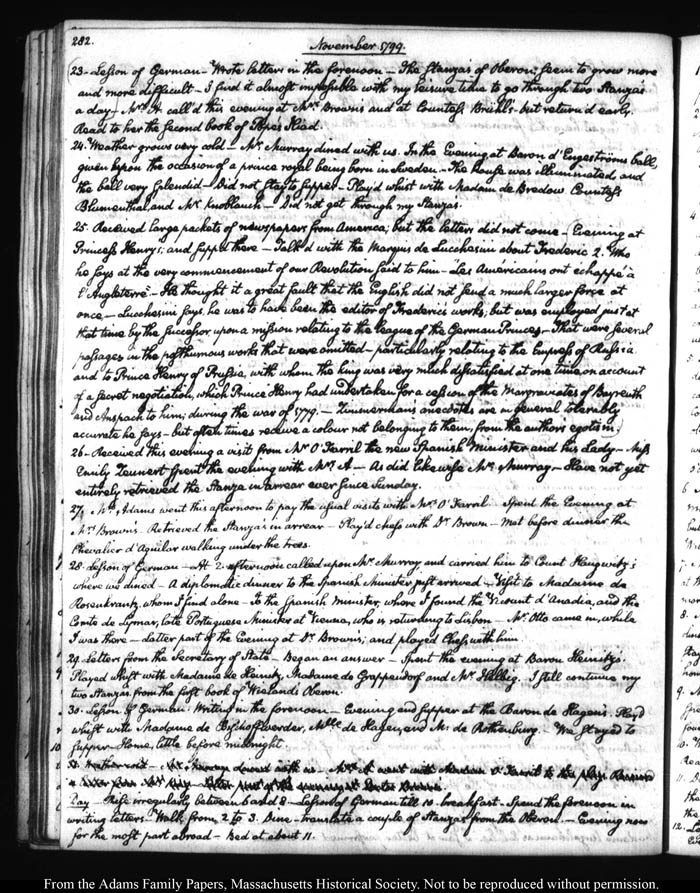 282.
November 1799.
23. Lesson of German – Wrote letters in the forenoon – The Stanza's of Oberon seem to grow more
and more difficult – I find it almost impossible with my leisure time to go through two Stanzas
a day – Mrs. A. call'd this evening at Mrs. Brown's and at Countess Brühl's but return'd early.
Read to her the second book of Pope's Iliad.
24. Weather grows very cold – Mr. Murray dined with us. In the Evening at Baron d'Engeström's ball,
given upon the occasion of a prince royal being born in Sweden – The house was illuminated, and
the ball very splendid – Did not stay to supper – Play'd whist with Madam de Bredow Countess
Blumenthal and Mr. Knoblauch – Did not get through my Stanzas.
25. Received large packets of newspapers from America; but the letters did not come – Evening at
Princess Henry's; and supp'd there – Talk'd with the Marquis de Lucchesini about Frederic 2. Who
he says at the very commencement of our Revolution said to him – "Les Americains ont echappé à
l'Angleterre" – He thought it a great fault that the English did not send a much larger force at
once – Lucchesini says, he was to have been the editor of Frederic's works; but was employed just at
that time by the successor upon a mission relating to the league of the German Princes – That were several
passages in the posthumous works that were omitted – particularly relating to the Empress of Russia.
and to Prince Henry of Prussia, with whom the king was very much dissatisfied at one time on account
of a secret negotiation, which Prince Henry had undertaken for a cession of the Margraviates of Bayreuth
and Anspach to him, during the war of 1779. – Zimmermans anecdotes are in general tolerably
accurate he says – but often times receive a colour not belonging to them, from the authors egotism.
26. Received this evening a visit from Mr. O'Farril the new Spanish Minister and his Lady – Miss
Emily spent the evening with Mrs. A – As did likewise Mr. Murray – Have not yet
entirely retrieved the Stanza in arrear ever since Sunday.
27. Mrs. Adams went this afternoon to pay the usual visits with Mrs. O'Farril. Spent the Evening at
Mrs. Brown's. Retrieved the Stanza's in arrear – Play'd chess with Dr. Brown – Met before dinner the
Chevalier d'Aguilar walking under the trees.
28. Lesson of German – At 2. afternoon called upon Mr. Murray and carried him to Count Haugwitz's
where we dined – A diplomatic dinner to the Spanish Minister just arrived – Visit to Madame de
Rosenkrantz, whom I find alone – To the Spanish Minister, where I found the Vicount d'Anadia, and the
Comte de late Portuguese Minister at Vienna, who is returning to Lisbon – Mr. Otto came in, while
I was there – Latter part of the Evening at Dr. Brown's; and played Chess with him.
29. Letters from the Secretary of State – Began an answer – Spent the evening at Baron Heinitz's.
Played whist with Madame de Heinitz, Madame de Grappendorf and Mr. Helbig. I still continue my
two Stanzas from the first book of Wieland's Oberon.
30. Lesson of German. Writing in the forenoon – Evening and supper at the Baron de Hagen's. Play'd
whist with Madame de Bischoffwerder, Mlle. de Hagen, and M. de Rothenburg. We stayed to
supper. Home, little before midnight.
31. Weather cold. Mr. Murray dined with us – Mrs. A went with Madam O'Farril to the play.
Latter part of the evening at Doctor Brown's.
Day – Rise irregularly between 6 and 8 – Lesson of German till 10. breakfast. Spend the forenoon in
writing letters – Walk from 2 to 3. Dine – translate a couple of Stanzas from the Oberon. – Evening now
for the most part abroad – Bed at about 11.
From the Adams Family Papers, Massachusetts Historical Society. Not to be reproduced without permission.